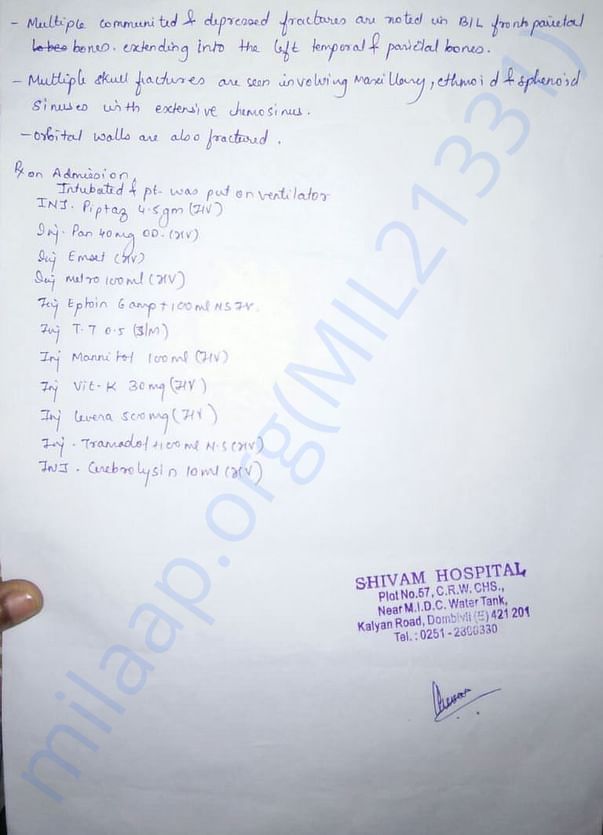 - Multiple communited & depressed fractures are noted in B/L fronto parietal
lobes bones. extending into the left temporal & parietal bones.
- Multiple skull fractures are seen involving Maxillary, ethmoid & sphenoid
sinuses with extensive hemosinus.
- Orbital walls are also fractured.
Rx on Admission,
Intubated & pt. was put on ventilator
INJ. Piptaz 4.5gm (IV)
Inj. Pan 40mg OD. (IV)
Inj Emset (IV)
Inj metro 100ml (IV)
Inj Eptoin 6 amp + 100ml NS IV.
Inj T.T 0.5 (I/M)
Inj Mannitol 100ml (IV)
Inj Vit-K 30mg (IV)
Inj Levera 500mg (IV)
Inj. Tramadol + 100ml N.S (IV)
INJ. Cerebrolysin 10ml (IV)
SHIVAM HOSPITAL
Plot No.57, C.R.W. CHS.,
Near M.I.D.C. Water Tank,
Kalyan Road, Dombivli (E) 421 201
Tel. : 0251 - 2800330
milaap.org(MIL21331)